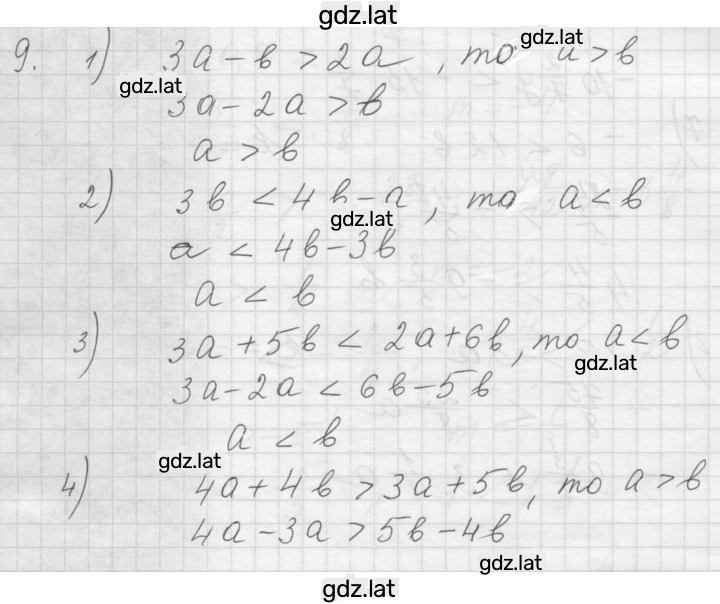 gdz.lat
9. 1) 3a - b > 2a, то a > b
gdz.lat
gdz.lat
3a - 2a > b
a > b
2) 3b < 4b - a, то a < b
gdz.lat
a < 4b - 3b
a < b
3) 3a + 5b < 2a + 6b, то a < b
gdz.lat
3a - 2a < 6b - 5b
a < b
gdz.lat
4) 4a + 4b > 3a + 5b, то a > b
4a - 3a > 5b - 4b
gdz.lat
gdz.lat